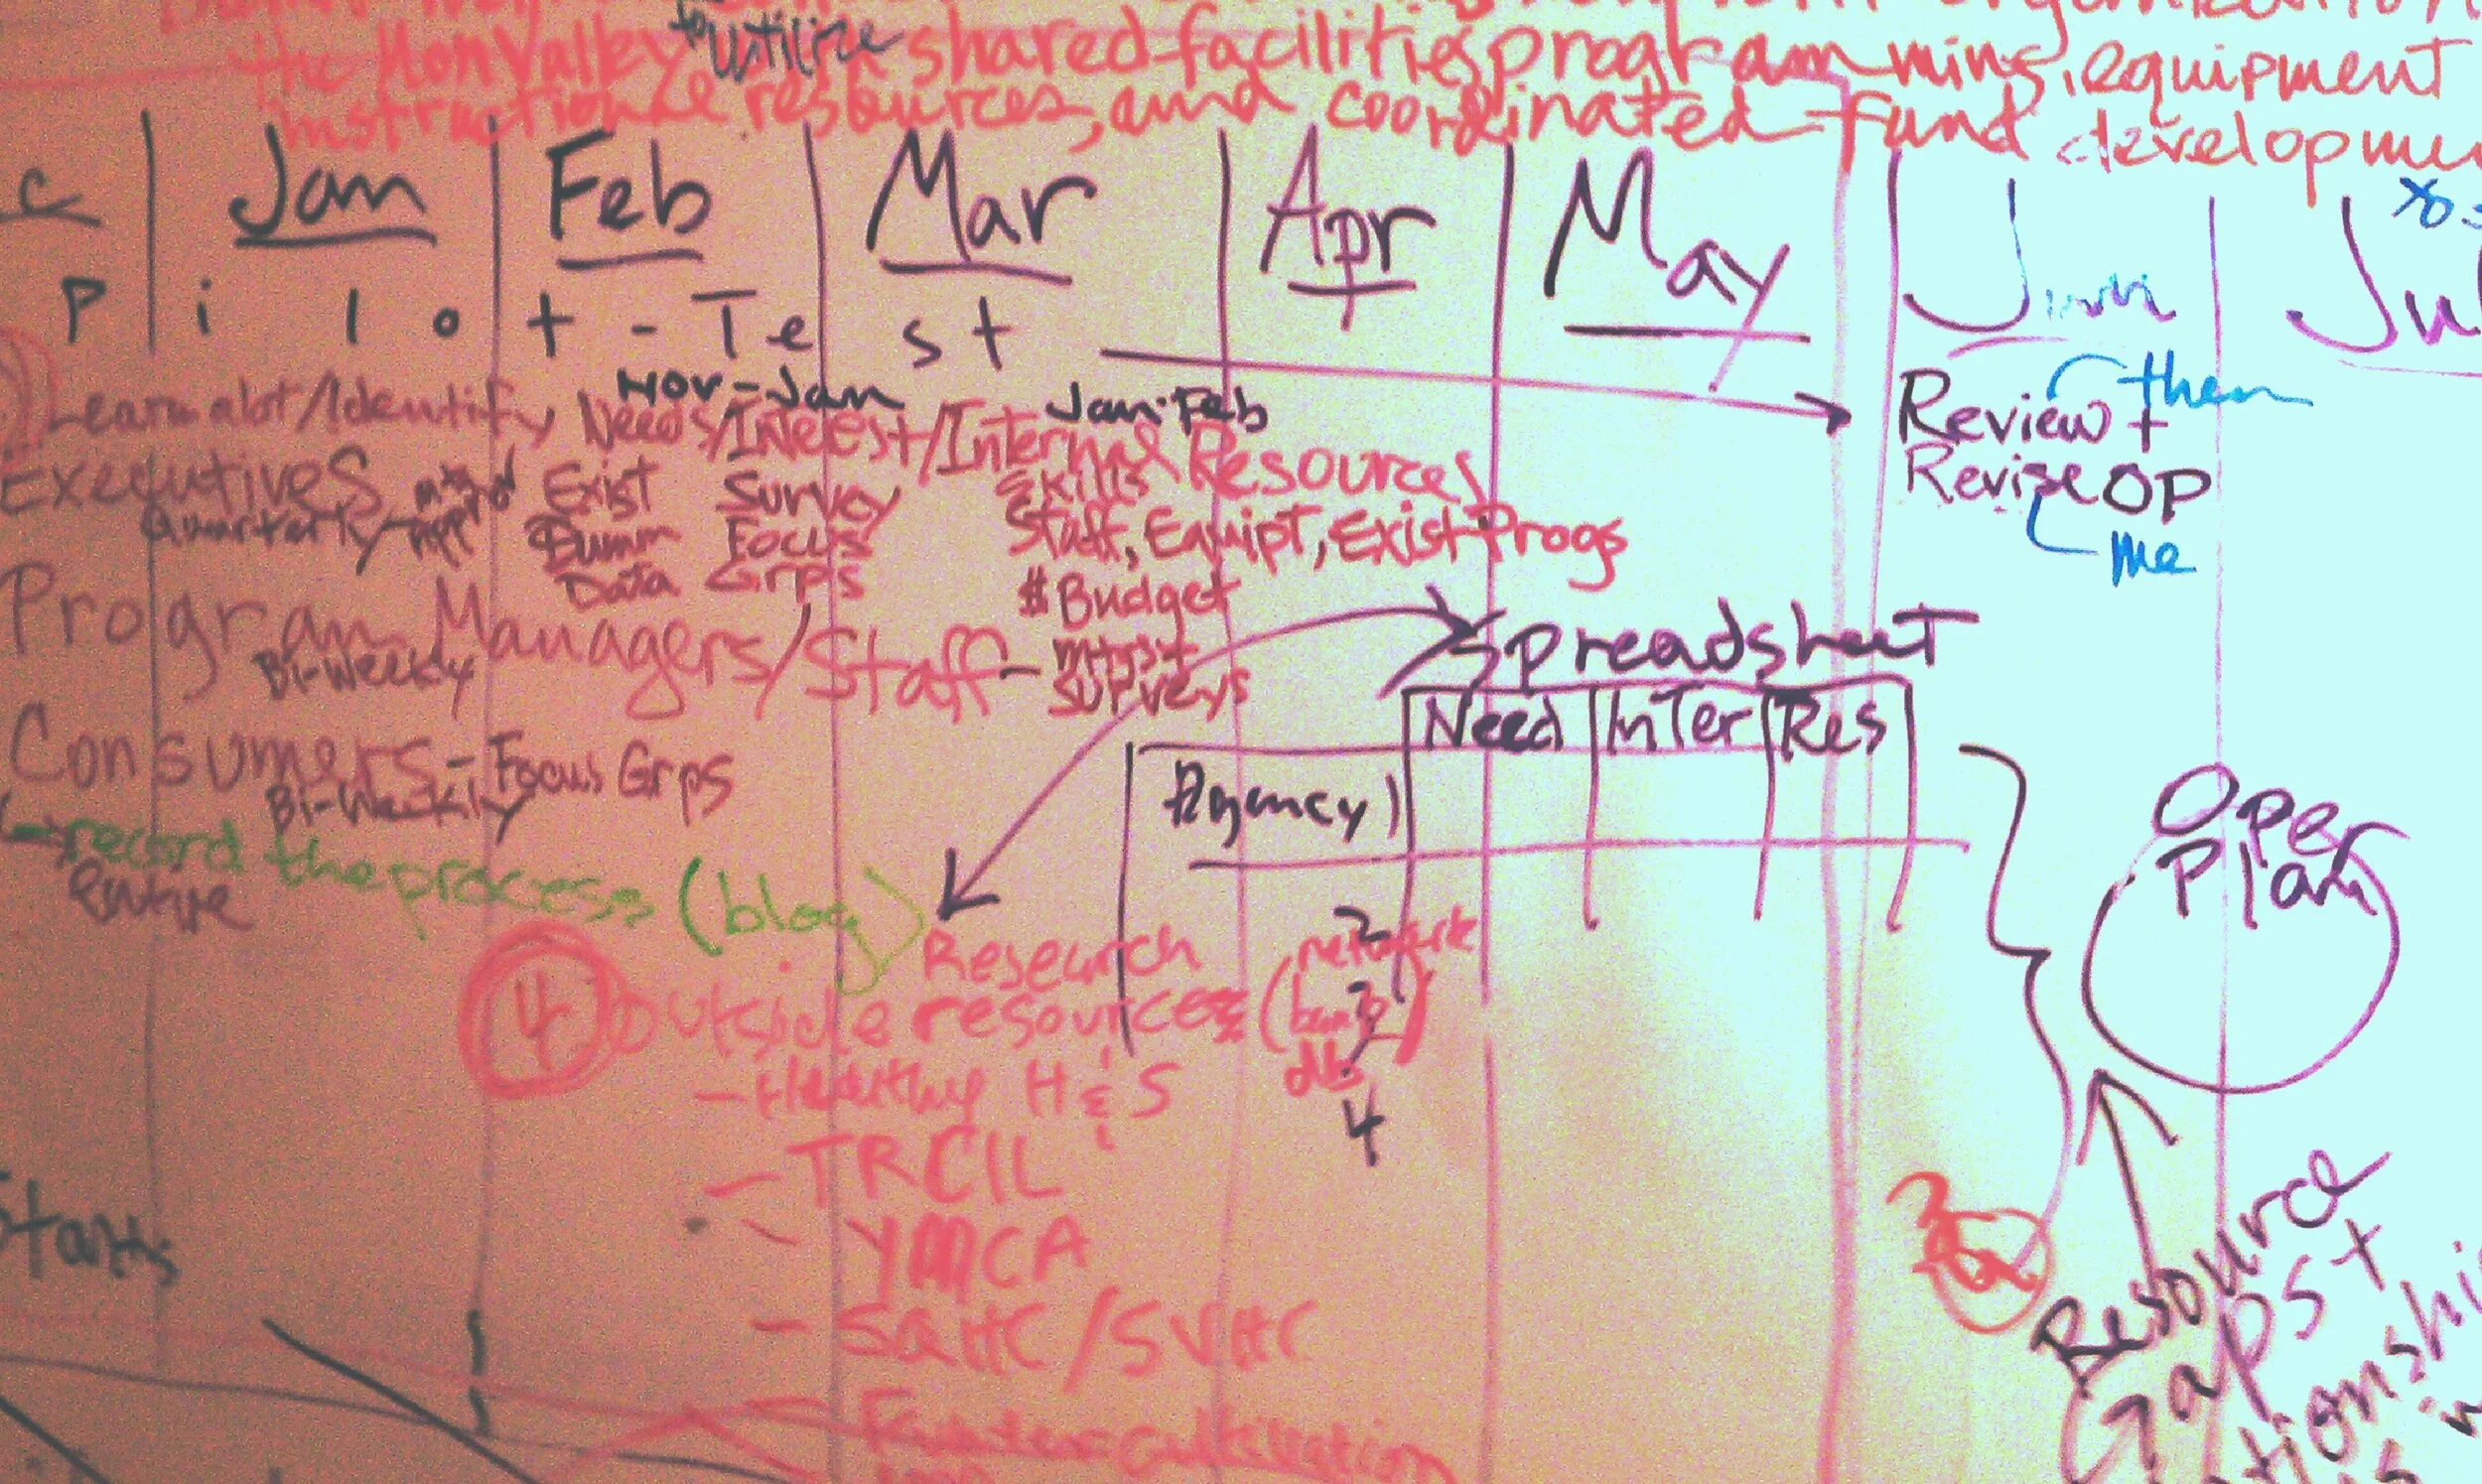 the Mon Valley to utilize shared facilities, programming, equipment
instructional resources, and coordinated fund developme
c Jan Feb Mar Apr May Jun Jul
Pilot-Test
Nov-Jan Jan-Feb
Learn alot/Identify Needs/Interest/Internal Resources
Review +
Revise OP
them
me
Executives
Quarterly
Exist
Data
Survey
Focus
Grps
Skills
Staff, Equipt, Exist Progs
$ Budget
Program Managers/Staff -
Bi-Weekly
surveys
Spreadsheet
Need Inter Res
Agency
Consumers - Focus Grps
Bi-Weekly
record the process (blog)
entire
2
3
4
Oper
Plan
4 Research
outside resources (network
db
- Healthy H & S
- TRCIL
- YMCA
- SQHC/SVHC
Resource
Gaps +